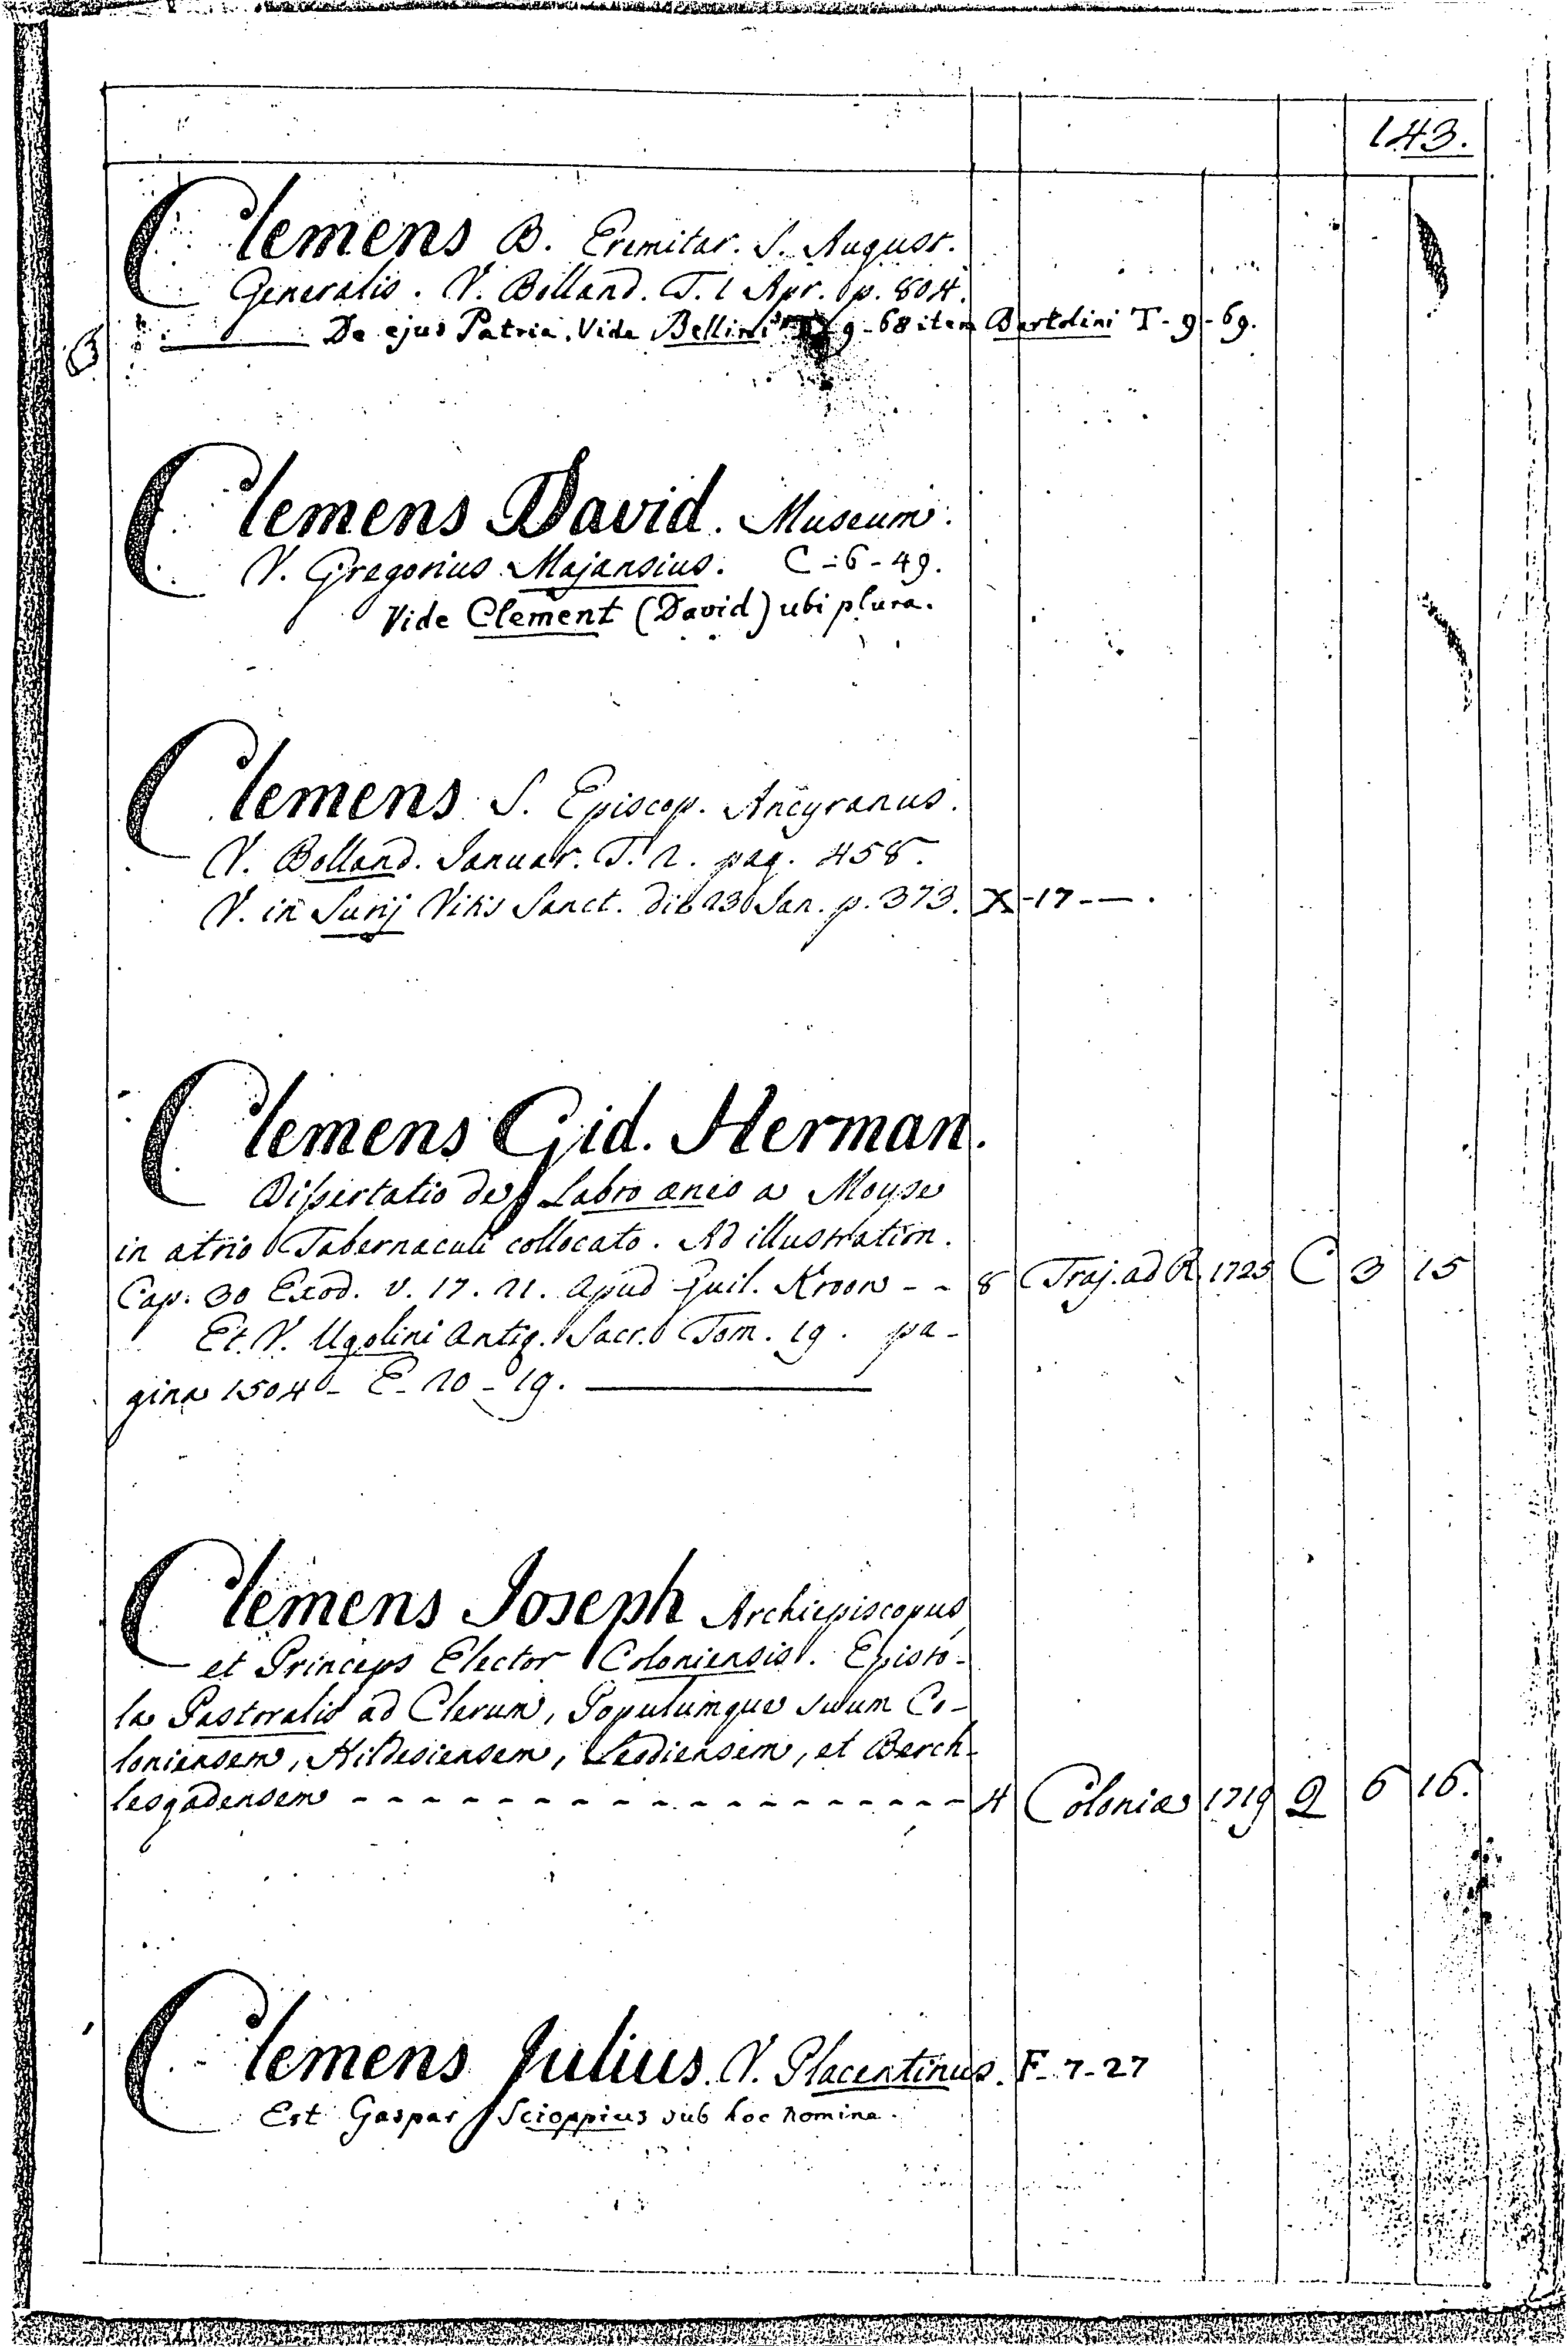 143.
Clemens B. Eremitar. S. August.
Generalis. V. Bolland. T. 1 Apr. p. 804.
De ejus Patria. Vide Bellini T 9-68 item Bertolini T-9-69.
Clemens David. Museum.
V. Gregorius Majansius. C-6-49.
Vide Clement (David) ubi plura.
Clemens S. Episcop. Ancyranus.
V. Bolland. Januar. T. 2. pag. 458.
V. in Surij Vitis Sanct. die 23 Jan. p. 373. X-17-—.
Clemens Gid. Herman.
Dissertatio de Labro æneo a Moyse
in atrio Tabernaculi collocato. Ad illustration.
Cap. 30 Exod. v. 17. 21. apud Guil. Kroon - - 8 Traj. ad R. 1725 C 3 15
Et V. Ugolini Antiq. Sacr. Tom. 19. pa-
gina 1504 - E-20-19.
Clemens Joseph Archiepiscopus,
et Princeps Elector Coloniensis. Episto-
la Pastoralis ad Clerum, Populumque suum Co-
loniensem, Hildesiensem, Leodiensem, et Berch-
lesgadensem - - - - - - - - - - - - - - - - - - 4 Coloniæ 1719 Q 6 16.
Clemens Julius. V. Placentinus. F-7-27
Est Gaspar Scioppius sub hoc nomine.